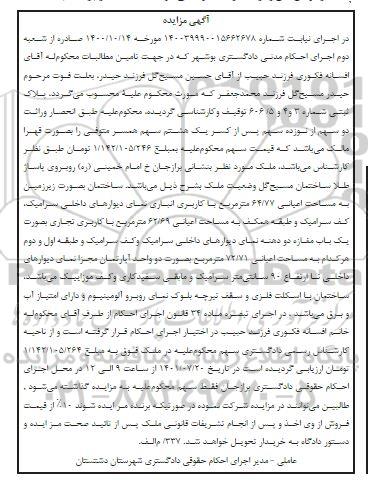 آگهی مزایده
در اجرای نیابت شماره ۱۴۰۰۳۹۹۹۰۰۱۵۶۶۲۶۷۸ مورخه ۱۴۰۰/۱۰/۱۴ صادره از شعبه
دوم اجرای احکام مدنی دادگستری بوشهر که در جهت تامین مطالبات محکوم‌له آقای
افسانه فکوری فرزند حبیب از آقای حسین مسیح‌گل فرزند حیدر، بعلت فوت مرحوم
حیدر مسیح‌گل فرزند محمدجعفر که مورث محکوم علیه محسوب می‌گردد، پلاک
ثبتی شماره ۳ و۴ و ۶۰۶/۵ توقیف وکارشناسی گردیده، محکوم‌علیه طبق انحصار وراثت
دو سهم از نوزده سهم پس از کسر یک هشتم سهم همسر متوفی را بصورت قهرا
مالک می‌باشد، که قیمت سهم محکوم‌علیه بمبلغ ۱/۱۴۲/۱۰۵/۲۴۶ تومان طبق نظر
کارشناس می‌باشد، ملک مورد نظر بنشانی برازجان خ امام خمینی (ره) روبروی پاساژ
طلا ساختمان مسیح‌گل وضعیت ملک بشرح ذیل می‌باشد. ساختمان بصورت زیرزمین
به مساحت اعیانی ۶۴/۷۷ مترمربع با کاربری انباری نمای دیوارهای داخلی سرامیک،
کف سرامیک و طبقه همکف به مساحت اعیانی ۶۲/۶۹ مترمربع با کاربری تجاری بصورت
یک باب مغازه دو دهنه نمای دیوارهای داخلی سرامیک وکف سرامیک و طبقه اول و دوم
هرکدام به مساحت اعیانی ۷۲/۷۱ مترمربع بصورت دو واحد آپارتمان مجزا نمای دیوارهای
داخلی تا ارتفاع ۹۰ سانتی‌متر سرامیک و مابقی سفیدکاری وکف موزاییک می‌باشد،
ساختمان با اسکلت فلزی و سقف تیرچه بلوک نمای روبرو آلومینیوم و دارای امتیاز آب
و برق می‌باشد ، در اجرای تبصره ماده ۳۴ قانون اجرای احکام از طرف آقای محکوم‌له
خانم افسانه فکوری فرزند حبیب در اختیار اجرای احکام قرار گرفته است و از ناحیه
کارشناس رسمی دادگستری سهم محکوم‌علیه در ملک فوق به مبلغ ۱/۱۴۲/۱۰۵/۲۶۴
تومان ارزیابی گردیده است در تاریخ ۱۴۰۱/۰۷/۲۰ از ساعت ۹ الی ۱۲ در محل اجرای
احکام حقوقی دادگستری برازجان فقط سهم محکوم‌علیه به مزایده گذاشته می‌شود ,
طالبین می‌توانند در مزایده شرکت نموده در صورتیکه برنده مزایده شوند ۱۰٪ از قیمت
فروش از وی اخذ و پس از انجام تشریفات قانونی ملک پس از تائید صحت مزایده و
دستور دادگاه به خریدار تحویل خواهد شد. ۳۳۷/ م‌الف.
عاملی - مدیر اجرای احکام حقوقی دادگستری شهرستان دشتستان